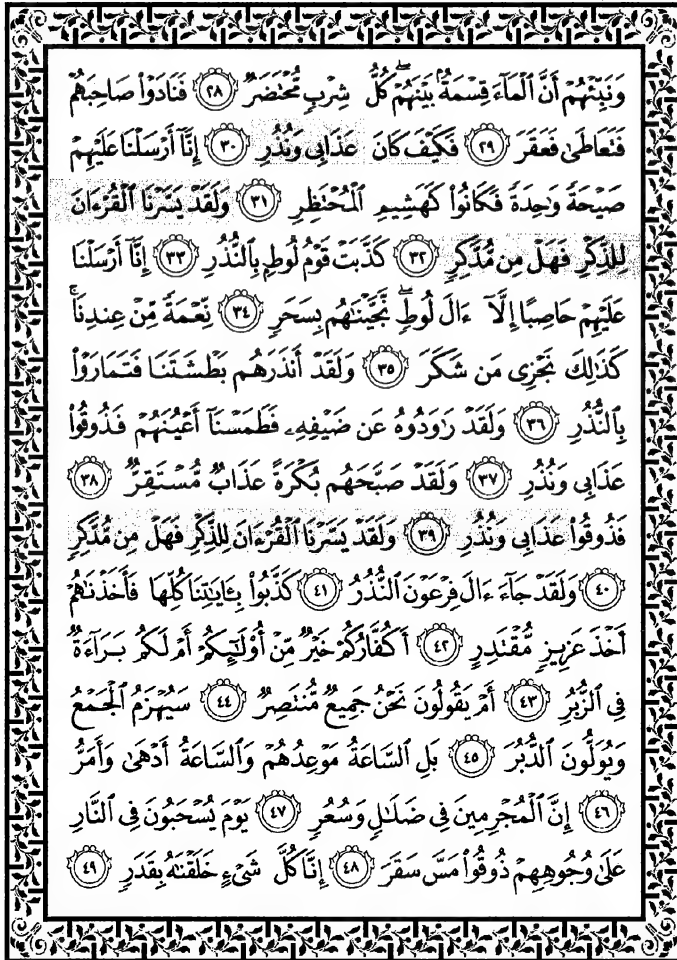 وَنَبِّئْهُمْ أَنَّ ٱلْمَآءَ قِسْمَةٌۢ بَيْنَهُمْ ۖ كُلُّ شِرْبٍ مُّحْتَضَرٌ ﴿٢٨﴾ فَنَادَوْا۟ صَاحِبَهُمْ
فَتَعَاطَىٰ فَعَقَرَ ﴿٢٩﴾ فَكَيْفَ كَانَ عَذَابِى وَنُذُرِ ﴿٣٠﴾ إِنَّآ أَرْسَلْنَا عَلَيْهِمْ
صَيْحَةً وَٰحِدَةً فَكَانُوا۟ كَهَشِيمِ ٱلْمُحْتَظِرِ ﴿٣١﴾ وَلَقَدْ يَسَّرْنَا ٱلْقُرْءَانَ
لِلذِّكْرِ فَهَلْ مِن مُّدَّكِرٍ ﴿٣٢﴾ كَذَّبَتْ قَوْمُ لُوطٍۭ بِٱلنُّذُرِ ﴿٣٣﴾ إِنَّآ أَرْسَلْنَا
عَلَيْهِمْ حَاصِبًا إِلَّآ ءَالَ لُوطٍ ۖ نَّجَّيْنَٰهُم بِسَحَرٍ ﴿٣٤﴾ نِّعْمَةً مِّنْ عِندِنَا ۚ
كَذَٰلِكَ نَجْزِى مَن شَكَرَ ﴿٣٥﴾ وَلَقَدْ أَنذَرَهُم بَطْشَتَنَا فَتَمَارَوْا۟
بِٱلنُّذُرِ ﴿٣٦﴾ وَلَقَدْ رَٰوَدُوهُ عَن ضَيْفِهِۦ فَطَمَسْنَآ أَعْيُنَهُمْ فَذُوقُوا۟
عَذَابِى وَنُذُرِ ﴿٣٧﴾ وَلَقَدْ صَبَّحَهُم بُكْرَةً عَذَابٌ مُّسْتَقِرٌّ ﴿٣٨﴾
فَذُوقُوا۟ عَذَابِى وَنُذُرِ ﴿٣٩﴾ وَلَقَدْ يَسَّرْنَا ٱلْقُرْءَانَ لِلذِّكْرِ فَهَلْ مِن مُّدَّكِرٍ
﴿٤٠﴾ وَلَقَدْ جَآءَ ءَالَ فِرْعَوْنَ ٱلنُّذُرُ ﴿٤١﴾ كَذَّبُوا۟ بِـَٔايَٰتِنَا كُلِّهَا فَأَخَذْنَٰهُمْ
أَخْذَ عَزِيزٍ مُّقْتَدِرٍ ﴿٤٢﴾ أَكُفَّارُكُمْ خَيْرٌ مِّنْ أُو۟لَٰٓئِكُمْ أَمْ لَكُم بَرَآءَةٌ
فِى ٱلزُّبُرِ ﴿٤٣﴾ أَمْ يَقُولُونَ نَحْنُ جَمِيعٌ مُّنتَصِرٌ ﴿٤٤﴾ سَيُهْزَمُ ٱلْجَمْعُ
وَيُوَلُّونَ ٱلدُّبُرَ ﴿٤٥﴾ بَلِ ٱلسَّاعَةُ مَوْعِدُهُمْ وَٱلسَّاعَةُ أَدْهَىٰ وَأَمَرُّ
﴿٤٦﴾ إِنَّ ٱلْمُجْرِمِينَ فِى ضَلَٰلٍ وَسُعُرٍ ﴿٤٧﴾ يَوْمَ يُسْحَبُونَ فِى ٱلنَّارِ
عَلَىٰ وُجُوهِهِمْ ذُوقُوا۟ مَسَّ سَقَرَ ﴿٤٨﴾ إِنَّا كُلَّ شَىْءٍ خَلَقْنَٰهُ بِقَدَرٍ ﴿٤٩﴾